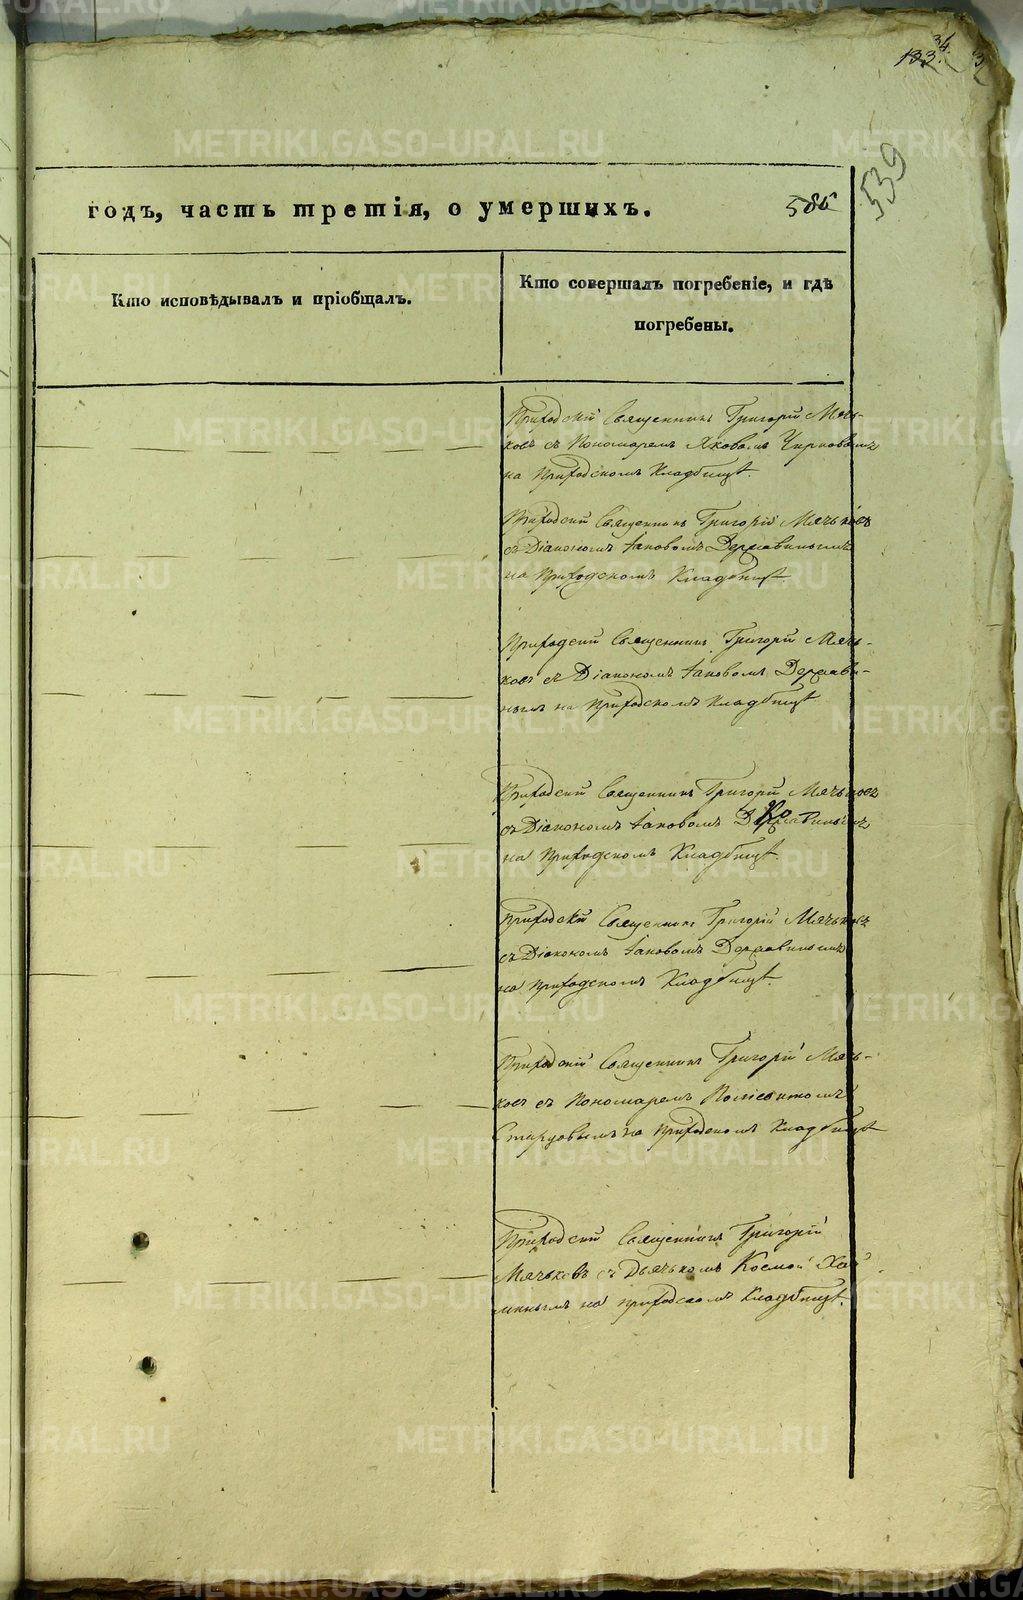 годъ, часть третія, о умершихъ. 586
539
Кто исповѣдывалъ и пріобщалъ.
Кто совершалъ погребеніе, и гдѣ
погребены.
Приходскій Священникъ Григорій Мячь-
ковъ съ Пономаремъ Яковомъ
на Приходскомъ Кладбищѣ.
Приходскій Священникъ Григорій Мячьковъ
съ Діакономъ Іаковомъ Державинымъ
на Приходскомъ Кладбищѣ
Приходскій Священникъ Григорій Мячь-
ковъ съ Діакономъ Іаковомъ Держави-
нымъ на Приходскомъ Кладбищѣ
Приходскій Священникъ Григорій Мячьковъ
съ Діакономъ Іаковомъ Державинымъ
на Приходскомъ Кладбищѣ.
Приходскій Священникъ Григорій Мячьковъ
съ Діакономъ Іаковомъ Державинымъ
на Приходскомъ Кладбищѣ.
Приходскій Священникъ Григорій Мячь-
ковъ съ Пономаремъ
на Приходскомъ Кладбищѣ
Приходскій Священникъ Григорій
Мячьковъ съ Дьячькомъ Космой
на приходскомъ Кладбищѣ.
METRIKI.GASO-URAL.RU